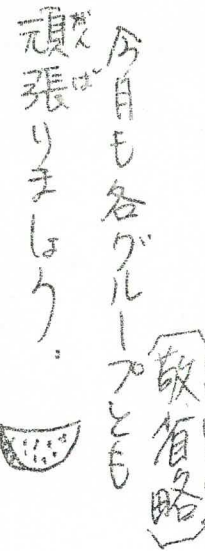 〔敬省略〕
今月も各グループとも
頑張りましょう。
がんば